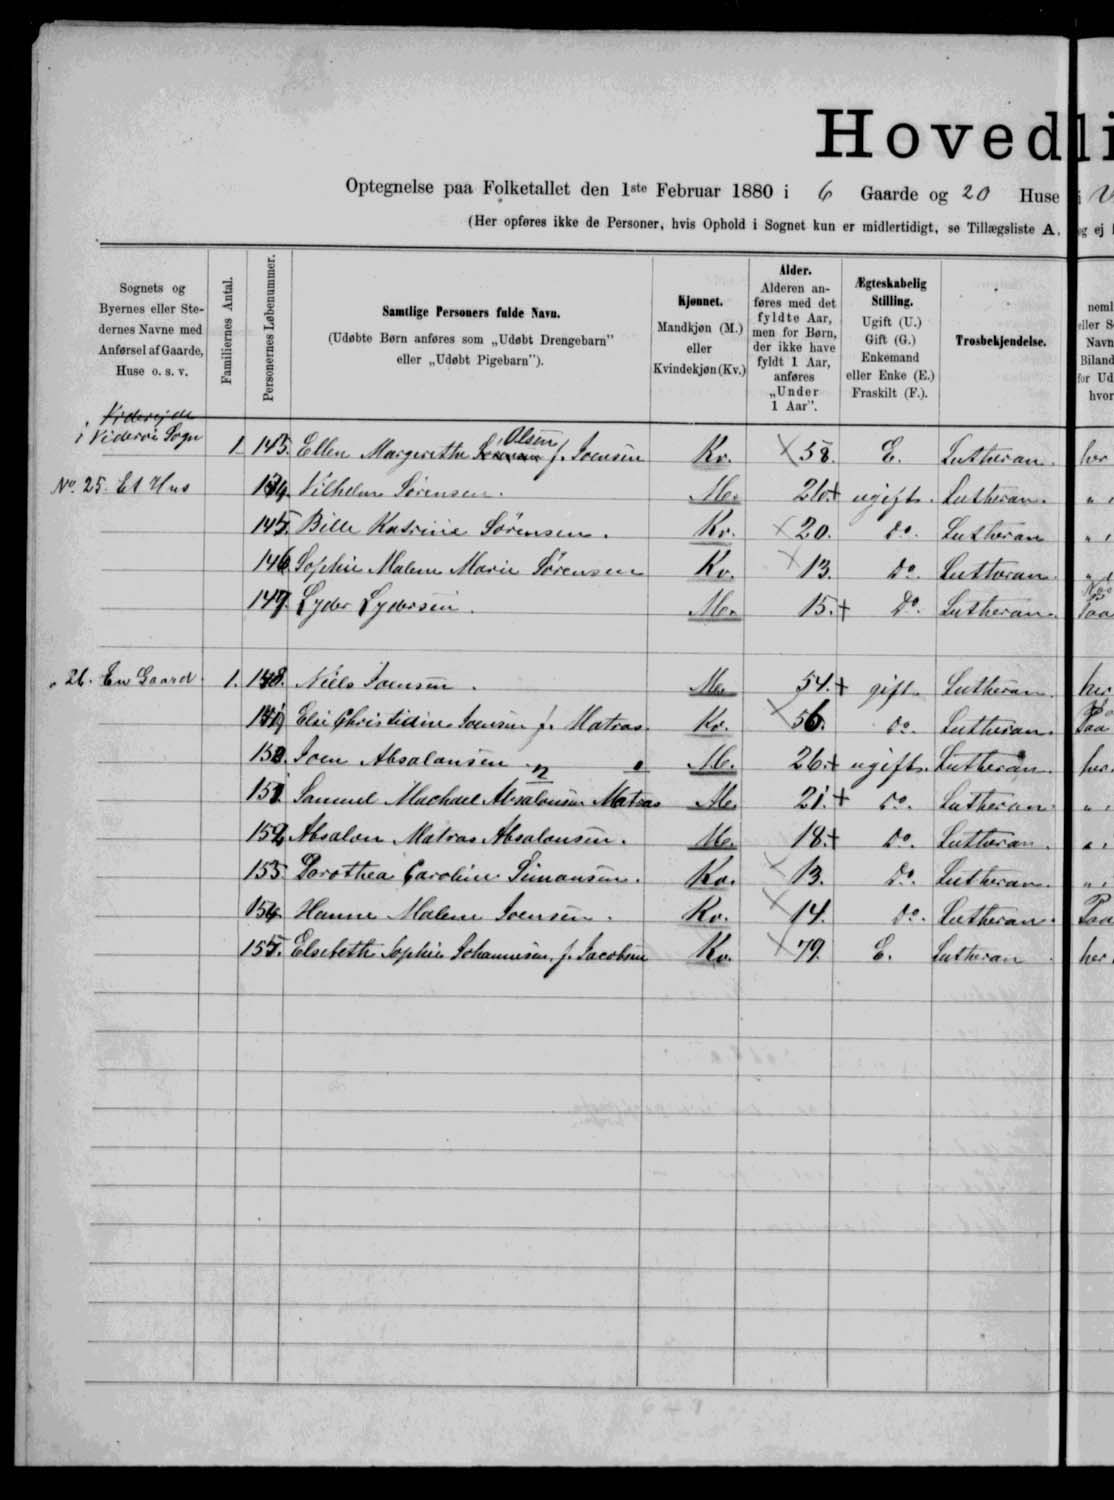 Hovedli
Optegnelse paa Folketallet den 1ste Februar 1880 i 6 Gaarde og 20 Huse i V
(Her opføres ikke de Personer, hvis Ophold i Sognet kun er midlertidigt, se Tillægsliste A, og ej
Sognets og Byernes eller Stedernes Navne med Anførsel af Gaarde, Huse o. s. v.
Familiernes Antal.
Personernes Løbenummer.
Samtlige Personers fulde Navn.
(Udøbte Børn anføres som „Udøbt Drengebarn" eller „Udøbt Pigebarn").
Kjønnet.
Mandkjøn (M.) eller Kvindekjøn (Kv.)
Alder.
Alderen anføres med det fyldte Aar, men for Børn, der ikke have fyldt 1 Aar, anføres „Under 1 Aar".
Ægteskabelig Stilling.
Ugift (U.) Gift (G.) Enkemand eller Enke (E.) Fraskilt (F.).
Trosbekjendelse.
Videreide
i Viderøi Sogn 1. 143. Ellen Margerethe Sørensen Olsen f. Joensen Kv. 58. E. Lutheran. her
No. 25. Et Hus 144. Vilhelm Sørensen. M. 26. ugift. Lutheran.
145. Bille Katrine Sørensen. Kv. 20. do. Lutheran
146. Sophie Malene Marie Sørensen Kv. 13. do. Lutheran.
147. Lyder Lydersen. M. 15. do. Lutheran. Paa
" 26. En Gaard. 1. 148. Niels Joensen. M. 54. gift. Lutheran. her
149. Else Christidine Joensen f. Matras. Kv. 56. do. Lutheran. Paa
150. Joen Absalonsen M. 26. ugift. Lutheran. her.
151. Samuel Machael Absalonsen Matras M. 21. do. Lutheran.
152. Absalon Matras Absalonsen. M. 18. do. Lutheran.
153. Dorothea Caroline Simonsen. Kv. 13. do. Lutheran.
154. Hanne Malene Joensen. Kv. 14. do. Lutheran. Paa
155. Elsebeth Sophie Johannesen, f. Jacobsen Kv. 79. E. Lutheran her